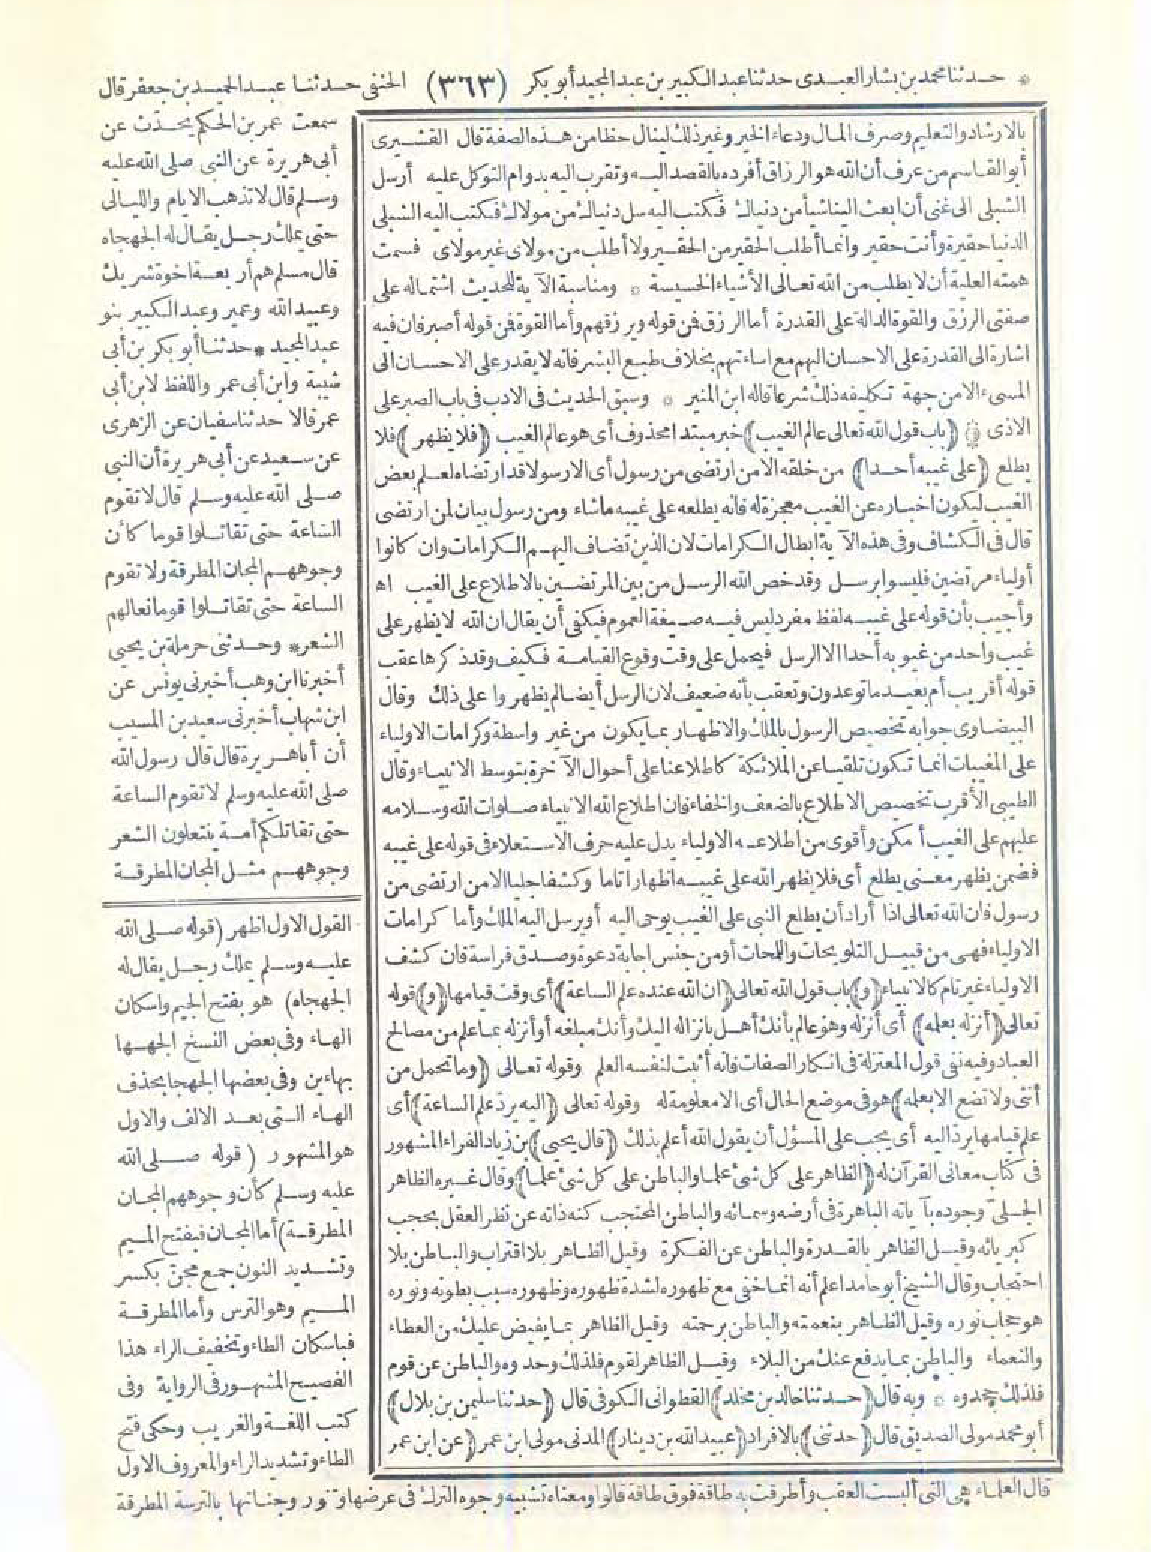 * حدثنا محمد بن بشار العبدى حدثنا عبد الكبير بن عبد المجيد أبو بكر (٣٦٣) الحنفى حدثنا عبد الحميد بن جعفر قال
سمعت عمر بن الحكم يحدث عن
أبى هريرة عن النبى صلى الله عليه
وسلم قال لا تذهب الايام والليالى
حتى يملك رجل يقال له الجهجاه
قال مسلم هم أربعة اخوة شريك
وعبيد الله وعمير وعبد الكبير بنو
عبد المجيد * حدثنا أبو بكر بن أبى
شيبة وابن أبى عمر واللفظ لابن أبى
عمر قالا حدثنا سفيان عن الزهرى
عن سعيد عن أبى هريرة أن النبى
صلى الله عليه وسلم قال لا تقوم
الساعة حتى تقاتلوا قوما كأن
وجوههم المجان المطرقة ولا تقوم
الساعة حتى تقاتلوا قوما نعالهم
الشعر * وحدثنى حرملة بن يحيى
أخبرنا ابن وهب أخبرنى يونس عن
ابن شهاب أخبرنى سعيد بن المسيب
أن أبا هريرة قال قال رسول الله
صلى الله عليه وسلم لا تقوم الساعة
حتى تقاتلكم أمة ينتعلون الشعر
وجوههم مثل المجان المطرقة
القول الاول اظهر (قوله صلى الله
عليه وسلم يملك رجل يقال له
الجهجاه) هو بفتح الجيم واسكان
الهاء وفى بعض النسخ الجهها
بهاءين وفى بعضها الجهجا بحذف
الهاء التى بعد الالف والاول
هو المشهور (قوله صلى الله
عليه وسلم كأن وجوههم المجان
المطرقة) أما المجان فبفتح الميم
وتشديد النون جمع مجن بكسر
الميم وهو الترس وأما المطرقة
فباسكان الطاء وتخفيف الراء هذا
الفصيح المشهور فى الرواية وفى
كتب اللغة والغريب وحكى فتح
الطاء وتشديد الراء والمعروف الاول
بالارشاد والتعليم وصرف المال ودعاء الخير وغير ذلك لينال حظا من هذه الصفة قال القشيرى
أبو القاسم من عرف أن الله هو الرزاق أفرده بالقصد اليه وتقرب اليه بدوام التوكل عليه أرسل
الشبلى الى غنى أن ابعث الينا شيأ من دنياك فكتب اليه سل دنياك من مولاك فكتب اليه الشبلى
الدنيا حقيرة وأنت حقير وانما أطلب الحقير من الحقير ولا أطلب من مولاى غير مولاى فسمت
همته العلية أن لا يطلب من الله تعالى الأشياء الخسيسة * ومناسبة الآية للحديث اشتماله على
صفتى الرزق والقوة الدالة على القدرة أما الرزق فمن قوله ويرزقهم وأما القوة فمن قوله أصبر فان فيه
اشارة الى القدرة على الاحسان اليهم مع اساءتهم بخلاف طبع البشر فانه لا يقدر على الاحسان الى
المسىء الا من جهة تكليفه ذلك شرعا قاله ابن المنير * وسبق الحديث فى الادب فى باب الصبر على
الاذى * (باب قول الله تعالى عالم الغيب) خبر مبتدا محذوف أى هو عالم الغيب (فلا يظهر) فلا
يطلع (على غيبه أحدا) من خلقه الا من ارتضى من رسول أى الا رسولا قد ارتضاه لعلم بعض
الغيب ليكون اخباره عن الغيب معجزة له فانه يطلعه على غيبه ماشاء ومن رسول بيان لمن ارتضى
قال فى الكشاف وفى هذه الآية ابطال الكرامات لان الذين تضاف اليهم الكرامات وان كانوا
أولياء مرتضين فليسوا برسل وقد خص الله الرسل من بين المرتضين بالاطلاع على الغيب اه
وأجيب بأن قوله على غيبه لفظ مفرد ليس فيه صيغة العموم فيكفى أن يقال ان الله لا يظهر على
غيب واحد من غيوبه أحدا الا الرسل فيحمل على وقت وقوع القيامة فكيف وقد ذكرها عقب
قوله أقريب أم بعيد ما توعدون وتعقب بأنه ضعيف لان الرسل أيضا لم يظهروا على ذلك وقال
البيضاوى جوابه تخصيص الرسول بالملك والاظهار بما يكون من غير واسطة وكرامات الاولياء
على المغيبات انما تكون تلقيا عن الملائكة كاطلاعنا على أحوال الآخرة بتوسط الانبياء وقال
الطيبى الأقرب تخصيص الاطلاع بالضعف والخفاء فان اطلاع الله الانبياء صلوات الله وسلامه
عليهم على الغيب أمكن وأقوى من اطلاعه الاولياء يدل عليه حرف الاستعلاء فى قوله على غيبه
فضمن يظهر معنى يطلع أى فلا يظهر الله على غيبه اظهارا تاما وكشفا جليا الا من ارتضى من
رسول فان الله تعالى اذا أراد أن يطلع النبى على الغيب يوحى اليه أو يرسل اليه الملك وأما كرامات
الاولياء فهى من قبيل التلويحات واللمحات أو من جنس اجابة دعوة وصدق فراسة فان كشف
الاولياء غير تام كالانبياء (و) باب قول الله تعالى (ان الله عنده علم الساعة) أى وقت قيامها (و) قوله
تعالى (أنزله بعلمه) أى أنزله وهو عالم بأنك أهل بانزاله اليك وأنك مبلغه أو أنزله بما علم من مصالح
العباد وفيه نفى قول المعتزلة فى انكار الصفات فانه أثبت لنفسه العلم وقوله تعالى (وما تحمل من
أنثى ولا تضع الا بعلمه) هو فى موضع الحال أى الا معلومة له وقوله تعالى (اليه يرد علم الساعة) أى
علم قيامها يرد اليه أى يجب على المسؤل أن يقول الله أعلم بذلك (قال يحيى) بن زياد الفراء المشهور
فى كتاب معانى القرآن له (الظاهر على كل شىء علما والباطن على كل شىء علما) وقال غيره الظاهر
الجلى وجوده بآياته الباهرة فى أرضه وسمائه والباطن المحتجب كنه ذاته عن نظر العقل بحجب
كبريائه وقيل الظاهر بالقدرة والباطن عن الفكرة وقيل الظاهر بلا اقتراب والباطن بلا
احتجاب وقال الشيخ أبو حامد اعلم أنه انما خفى مع ظهوره لشدة ظهوره وظهوره سبب بطونه ونوره
هو حجاب نوره وقيل الظاهر بنعمته والباطن برحمته وقيل الظاهر بما يفيض عليك من العطاء
والنعماء والباطن بما يدفع عنك من البلاء وقيل الظاهر لقوم فلذلك وحدوه والباطن عن قوم
فلذلك جحدوه * وبه قال (حدثنا خالد بن مخلد) القطوانى الكوفى قال (حدثنا سليمن بن بلال)
أبو محمد مولى الصديق قال (حدثنى) بالافراد (عبيد الله بن دينار) المدنى مولى ابن عمر (عن ابن عمر
قال العلماء هى التى ألبست العقب وأطرقت به طاقة فوق طاقة قالوا ومعناه تشبيه وجوه الترك فى عرضها وتنور وجناتها بالترسة المطرقة